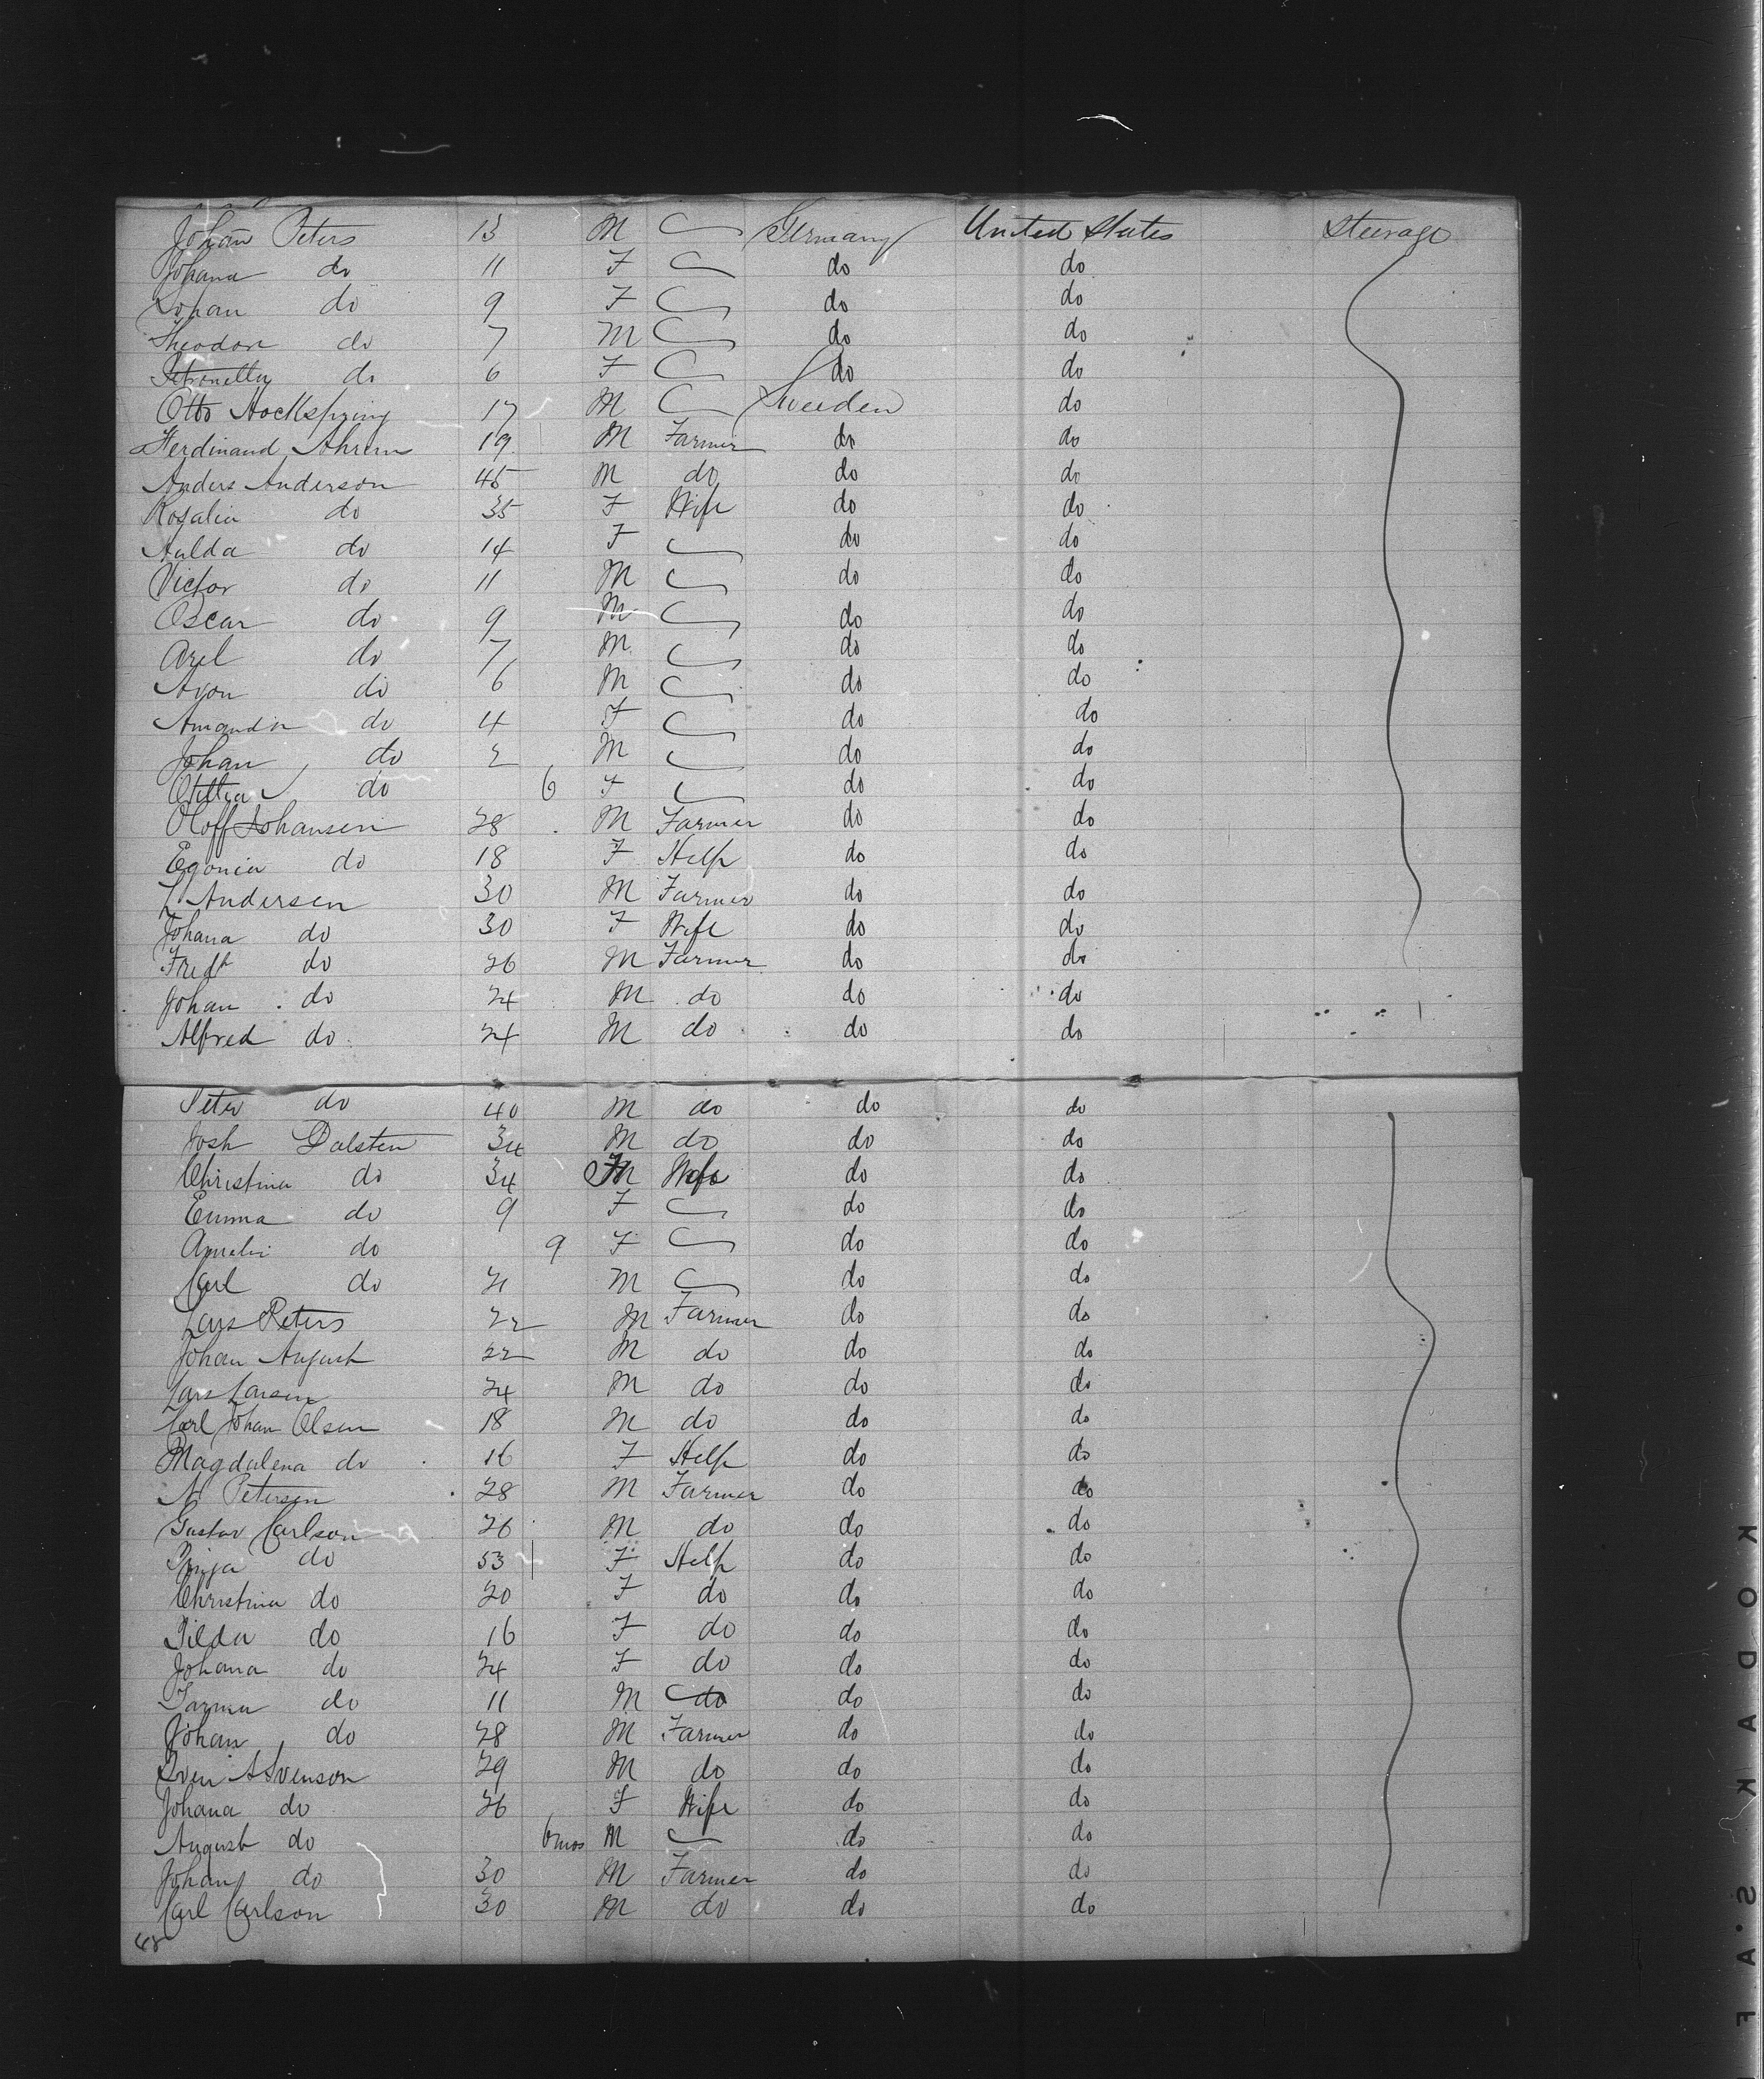 Johan Peters 13 M Germany United States Steerage
Johana do 11 F do do
Johan do 9 F do do
Theodor do 7 M do do
Petronella do 6 F do do
Otto 17 M Sweden do
Ferdinand 19 M Farmer do do
Anders Anderson 45 M do do do
Rosalia do 35 F Wife do do
Aulda do 14 F do do
Victor do 11 M do do
Oscar do 9 M do do
Axel do 7 M do do
do 6 M do do
Amanda do 4 F do do
Johan do 2 M do do
Otillia do 6 F do do
Oloff Johansen 28 M Farmer do do
Egonia do 18 F Help do do
L Andersen 30 M Farmer do do
Johana do 30 F Wife do do
Fredk do 26 M Farmer do do
Johan do 24 M do do do
Alfred do 24 M do do do
Peter do 40 M do do do
Josh Dalsten 34 M do do do
Christina do 34 F Wife do do
Emma do 9 F do do
Amalie do 9 F do do
Carl do M do do
Lars Peters 22 M Farmer do do
Johan August 22 M do do do
Lars Larsen 24 M do do do
Carl Johan Olsen 18 M do do do
Magdalena do 16 F Help do do
A Petersen 28 M Farmer do do
Gustav Carlson 26 M do do do
do 53 F Help do do
Christina do 20 F do do do
do 16 F do do do
Johana do 24 F do do do
do 11 M do do
Johan do 28 M Farmer do do
Sven Svenson 29 M do do do
Johana do 26 F Wife do do
August do 6 mos M do do
Johan do 30 M Farmer do do
Carl Carlson 30 M do do do
48
KODAK S.A F